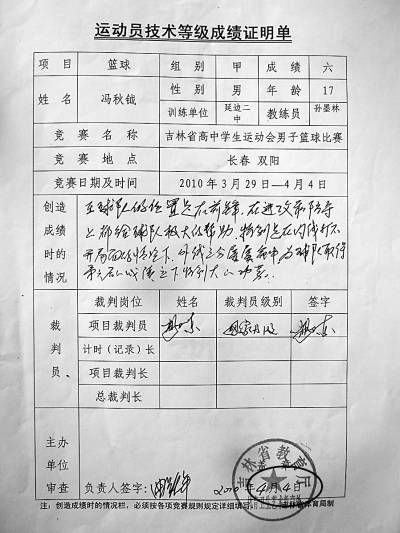 运动员技术等级成绩证明单
项目 篮球 组别 甲 成绩 六
姓名 冯秋钺 性别 男 年龄 17
训练单位 延边二中 教练员 孙墨林
竞赛名称 吉林省高中学生运动会男子篮球比赛
竞赛地点 长春 双阳
竞赛日期及时间 2010年3月29日—4月4日
创造
成绩
时的
情况
在球队的位置是在前锋,在进攻和防守
上都给球队极大的帮助,特别是在内线打不
开局面的情况下,外线三分屡屡命中,为球队取得
裁判岗位 姓名 裁判员级别 签字
裁判员、
项目裁判员 国家
计时(记录)长
项目裁判长
总裁判长
主办
单位
审查
负责人签字:
吉林省教育厅
2010年4月4日
注:创造成绩时的情况栏,必须按各项竞赛规则规定详细填写
吉林省体育局制